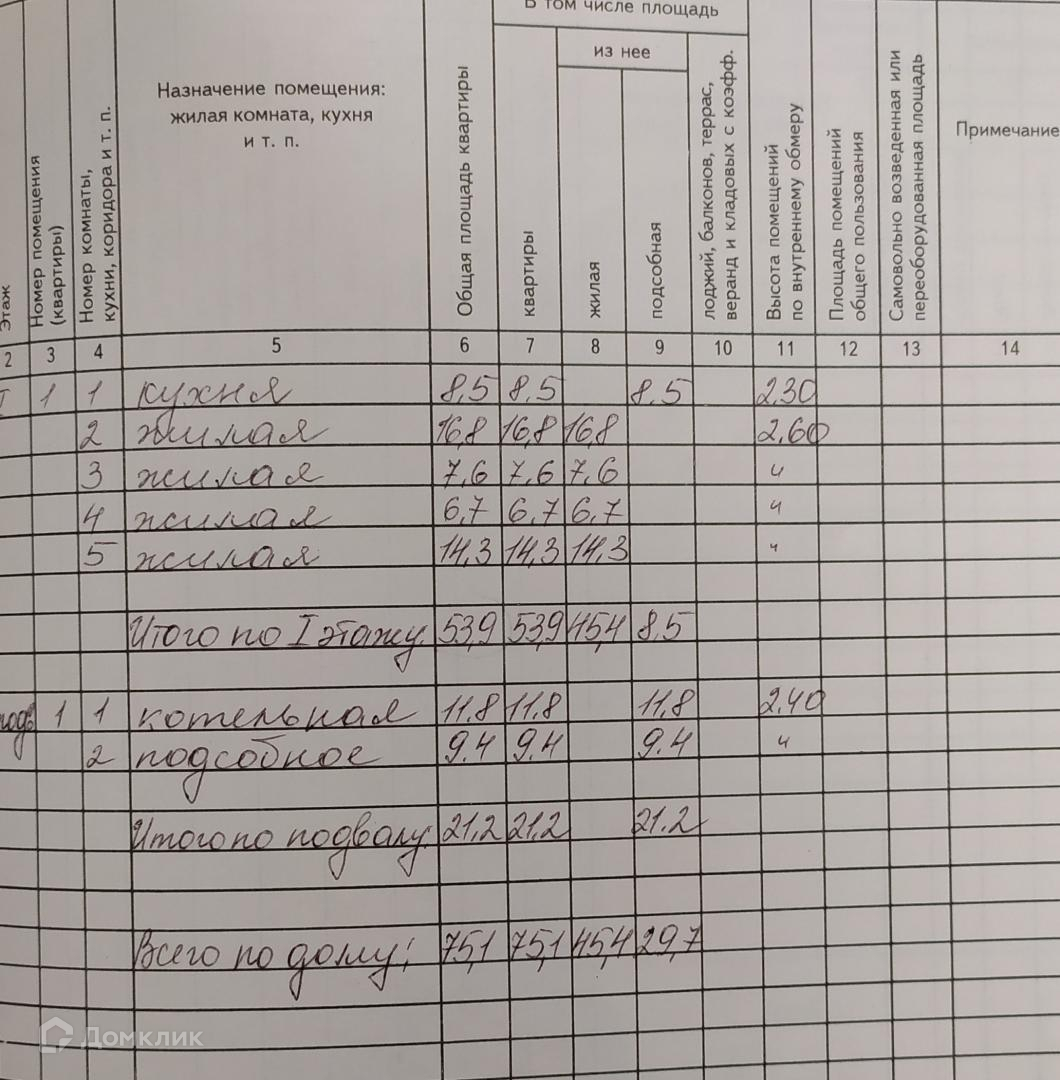 В том числе площадь
из нее
Этаж
Номер помещения
(квартиры)
Номер комнаты,
кухни, коридора и т. п.
Назначение помещения:
жилая комната, кухня
и т. п.
Общая площадь квартиры
квартиры
жилая
подсобная
лоджий, балконов, террас,
веранд и кладовых с коэфф.
Высота помещений
по внутреннему обмеру
Площадь помещений
общего пользования
Самовольно возведенная или
переоборудованная площадь
Примечание
2 3 4 5 6 7 8 9 10 11 12 13 14
I 1 1 кухня 8,5 8,5 8.5 2.30
2 жилая 16,8 16,8 16,8 2.60
3 жилая 7,6 7,6 7,6 "
4 жилая 6,7 6,7 6,7 "
5 жилая 14,3 14,3 14,3 "
Итого по I этажу: 53,9 53,9 45,4 8.5
подв 1 1 котельная 11.8 11.8 11,8 2.40
2 подсобное 9.4 9.4 9.4 "
Итого по подвалу: 21,2 21,2 21.2
Всего по дому: 75,1 75,1 45,4 29,7
Домклик